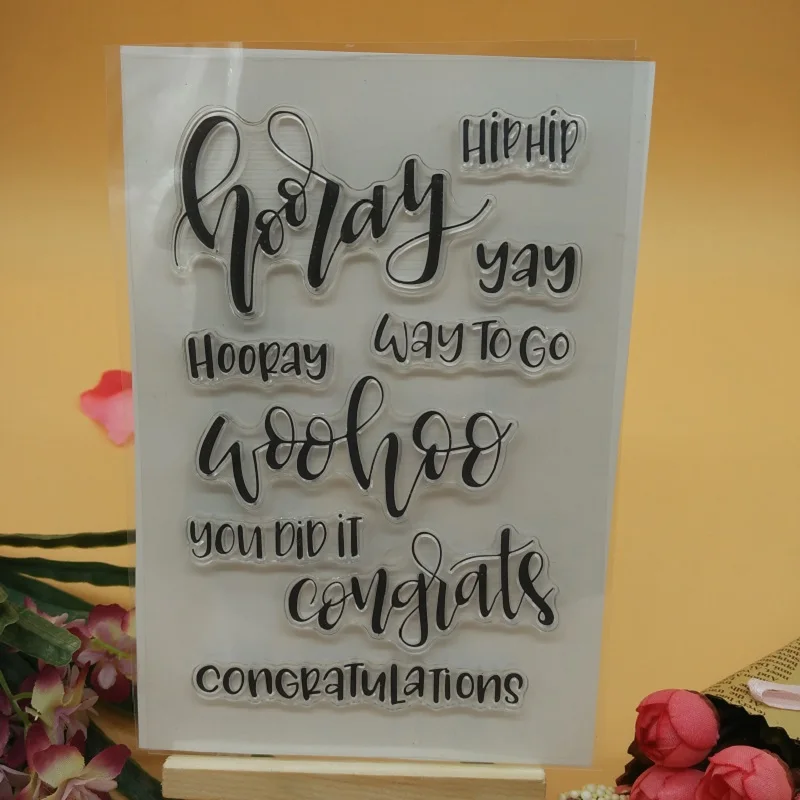 hooray
HiP HiP
yay
Hooray
Way To Go
woohoo
you DiD iT
congrats
congratulations